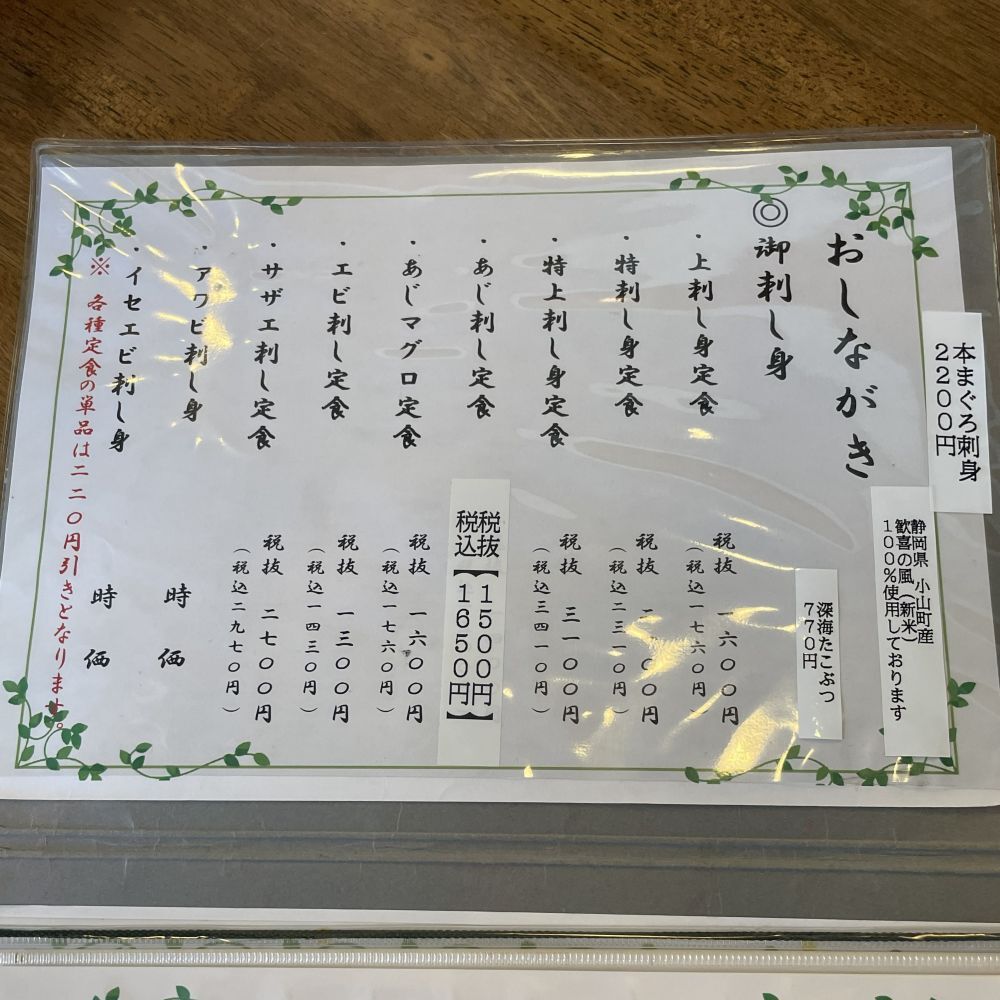 本まぐろ刺身
2200円
静岡県 小山町産
歓喜の風(新米)
100%使用しております
おしながき
深海たこぶつ
770円
◎御刺し身
・上刺し身定食 税抜 一六〇〇円
(税込一七六〇円)
・特刺し身定食 税抜 二一〇〇円
(税込二三一〇円)
・特上刺し身定食 税抜 三一〇〇円
(税込三四一〇円)
・あじ刺し定食 税抜【1500円】
税込【1650円】
・あじマグロ定食 税抜 一六〇〇円
(税込一七六〇円)
・エビ刺し定食 税抜 一三〇〇円
(税込一四三〇円)
・サザエ刺し定食 税抜 二七〇〇円
(税込二九七〇円)
・アワビ刺し身 時価
・イセエビ刺し身 時価
※ 各種定食の単品は二二〇円引きとなります。